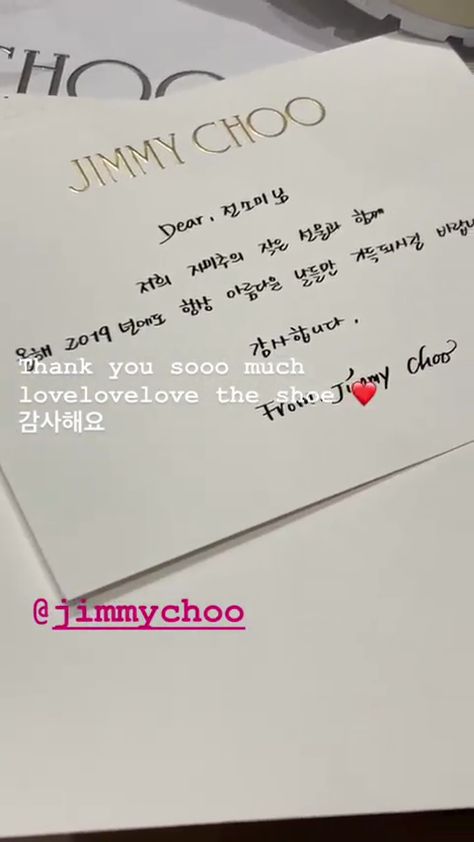 CHOO
JIMMY CHOO
Dear. 전소미 님
저희 지미추의 작은 선물과 함께
올해 2019 년에도 항상 아름다운 날들만 가득되시길 바랍니
감사합니다.
From. Jimmy Choo
Thank you sooo much
lovelovelove the shoe
감사해요
@jimmychoo